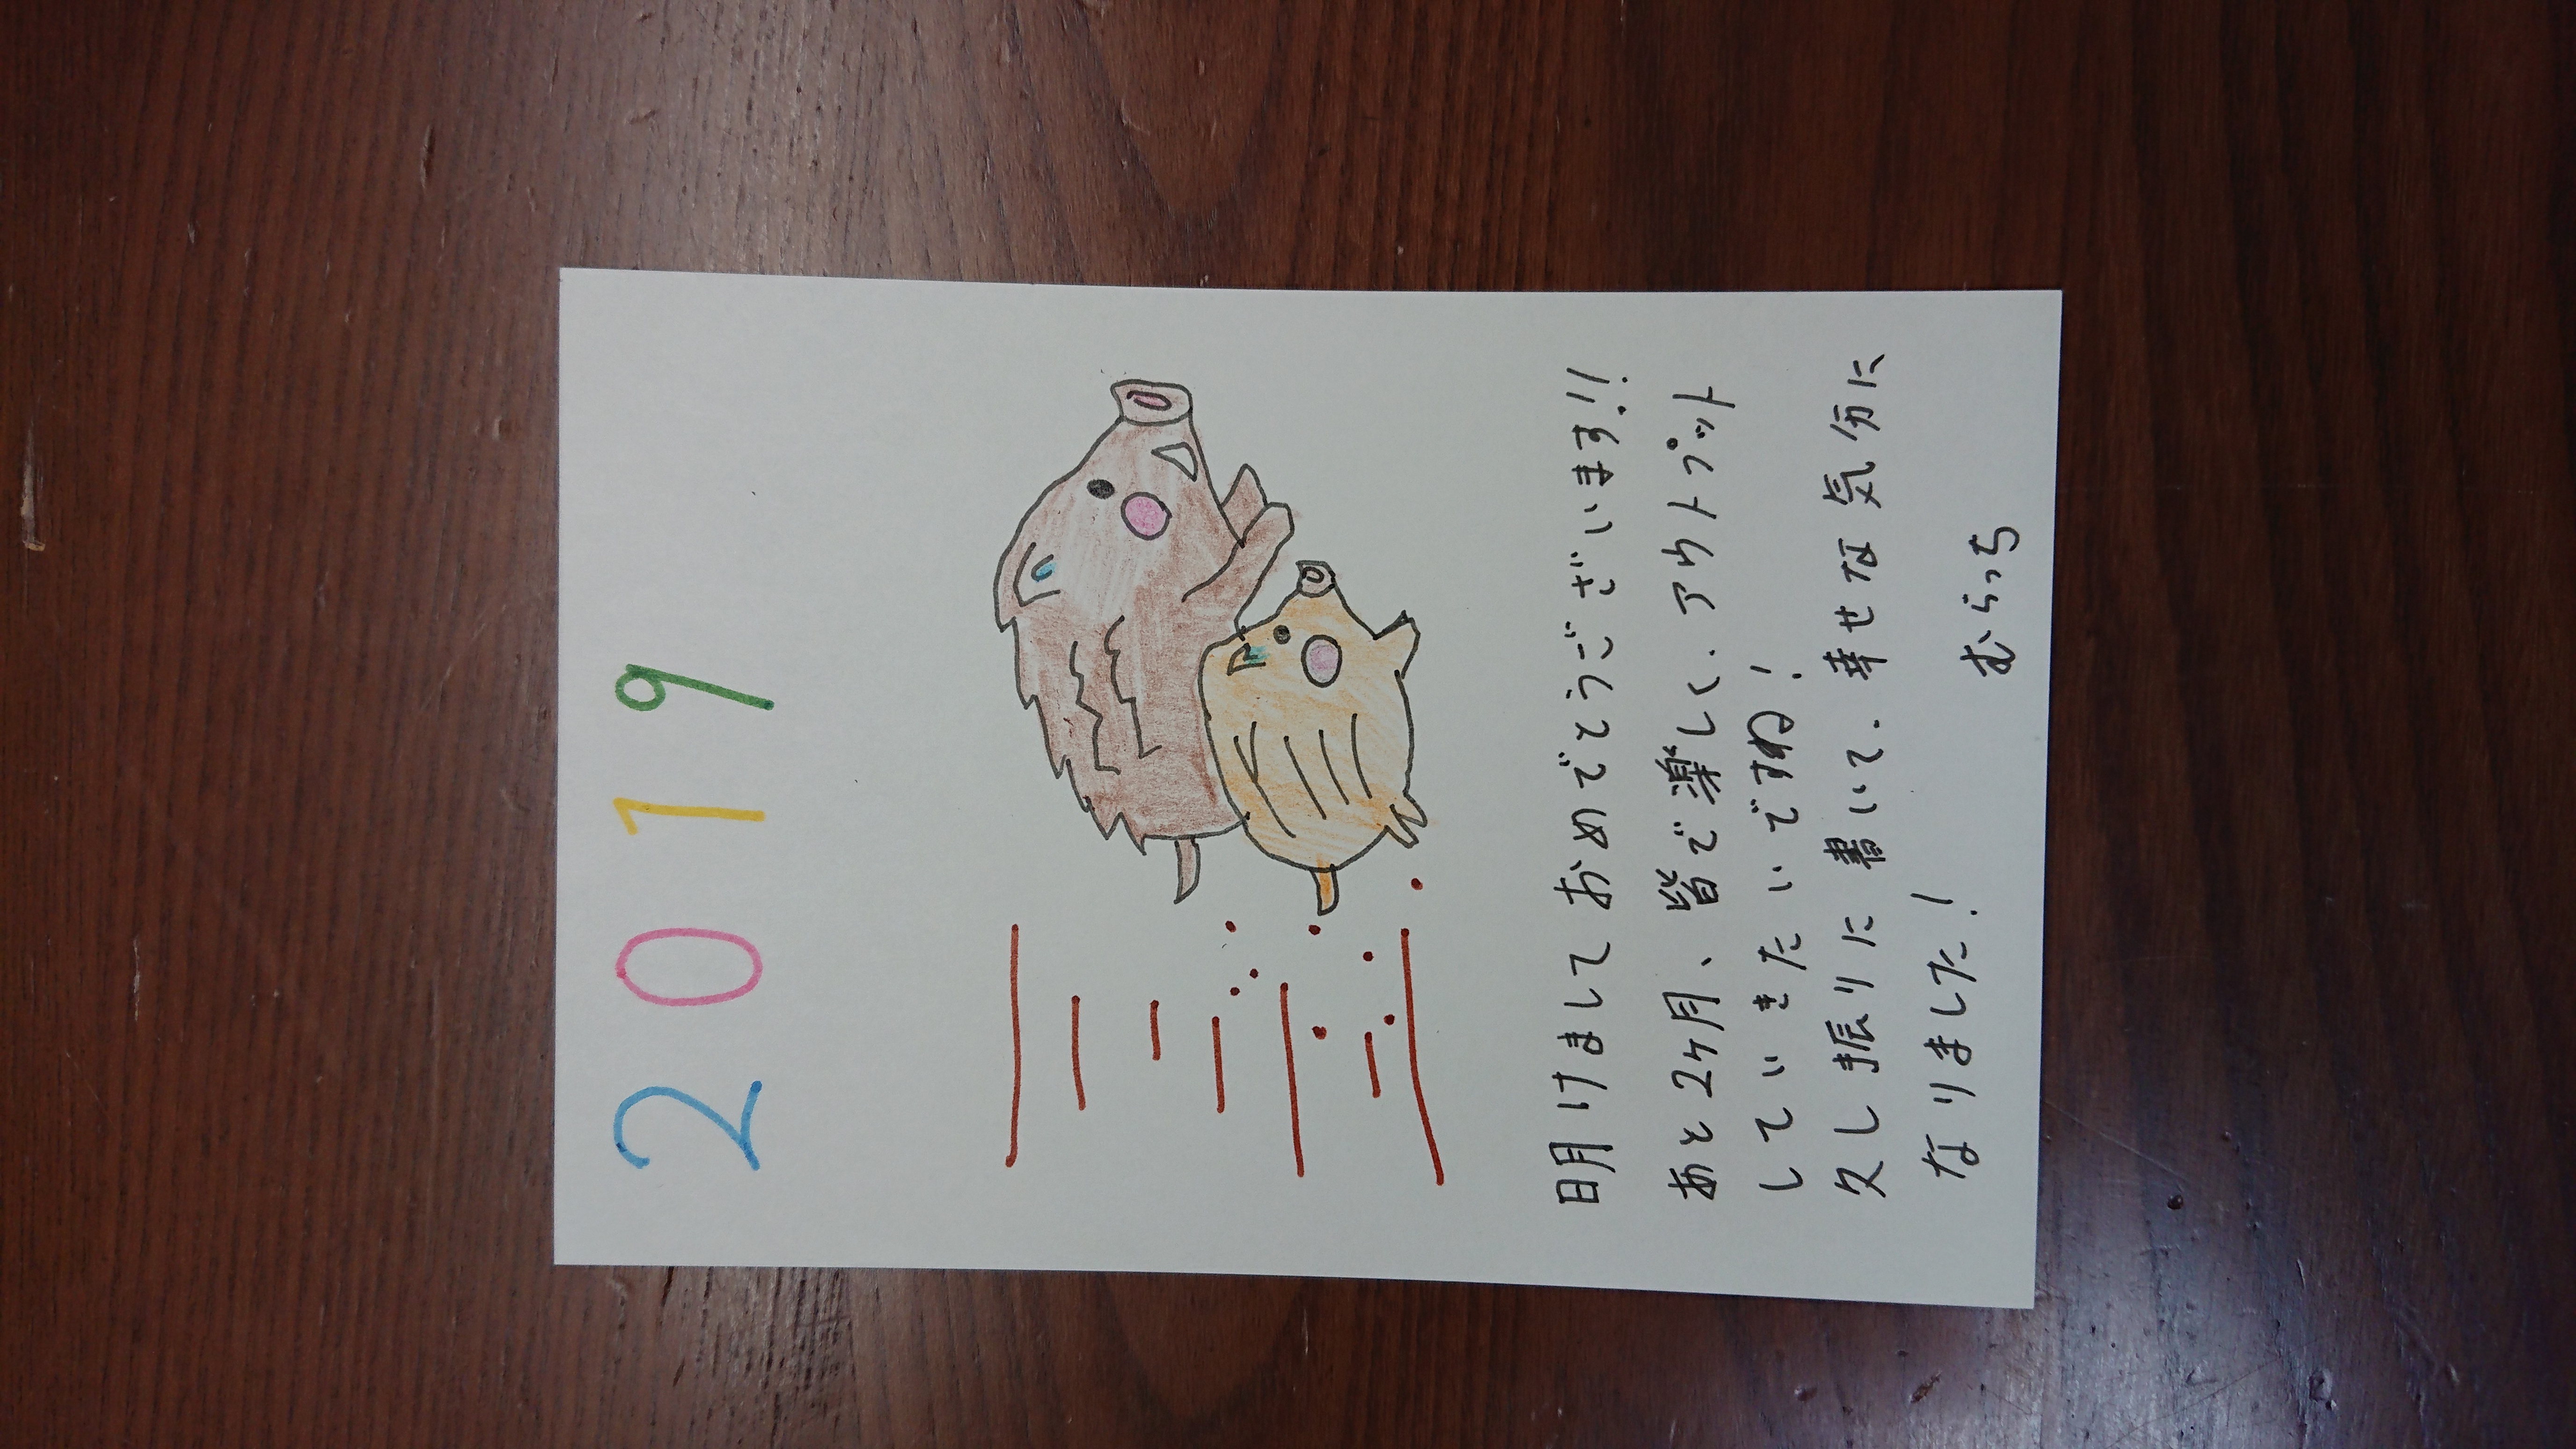 2019
明けましておめでとうございます!!
あと2ヶ月、皆で楽しく、アウトプット
していきたいですね!
久し振りに書いて、幸せな気分に
なりました!
むらっち